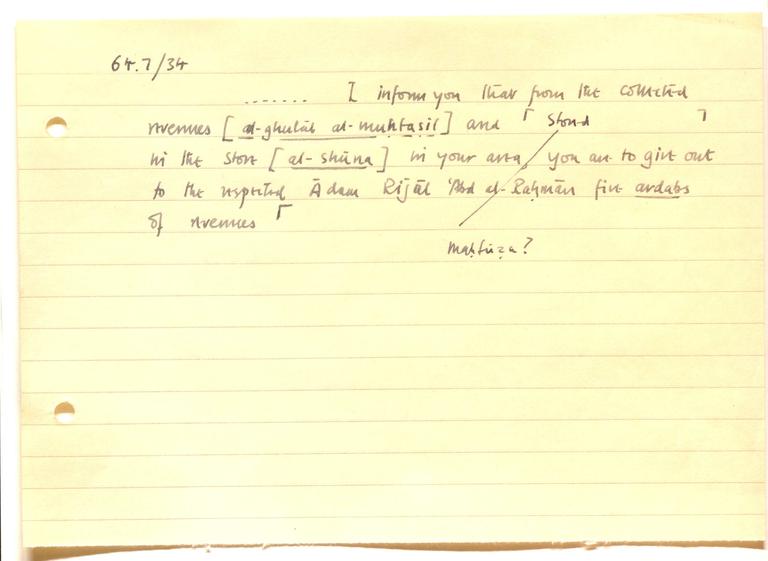 64.7/34
....... I inform you that from the collected
revenues [al-ghulāl al-muḥtaṣil] and ⌈ stored ⌉
in the store [al-shūna] in your area, you are to give out
to the respected Ādam Rijāl 'Abd al-Raḥmān five ardabs
of revenues ⌈
maḥfūẓa?